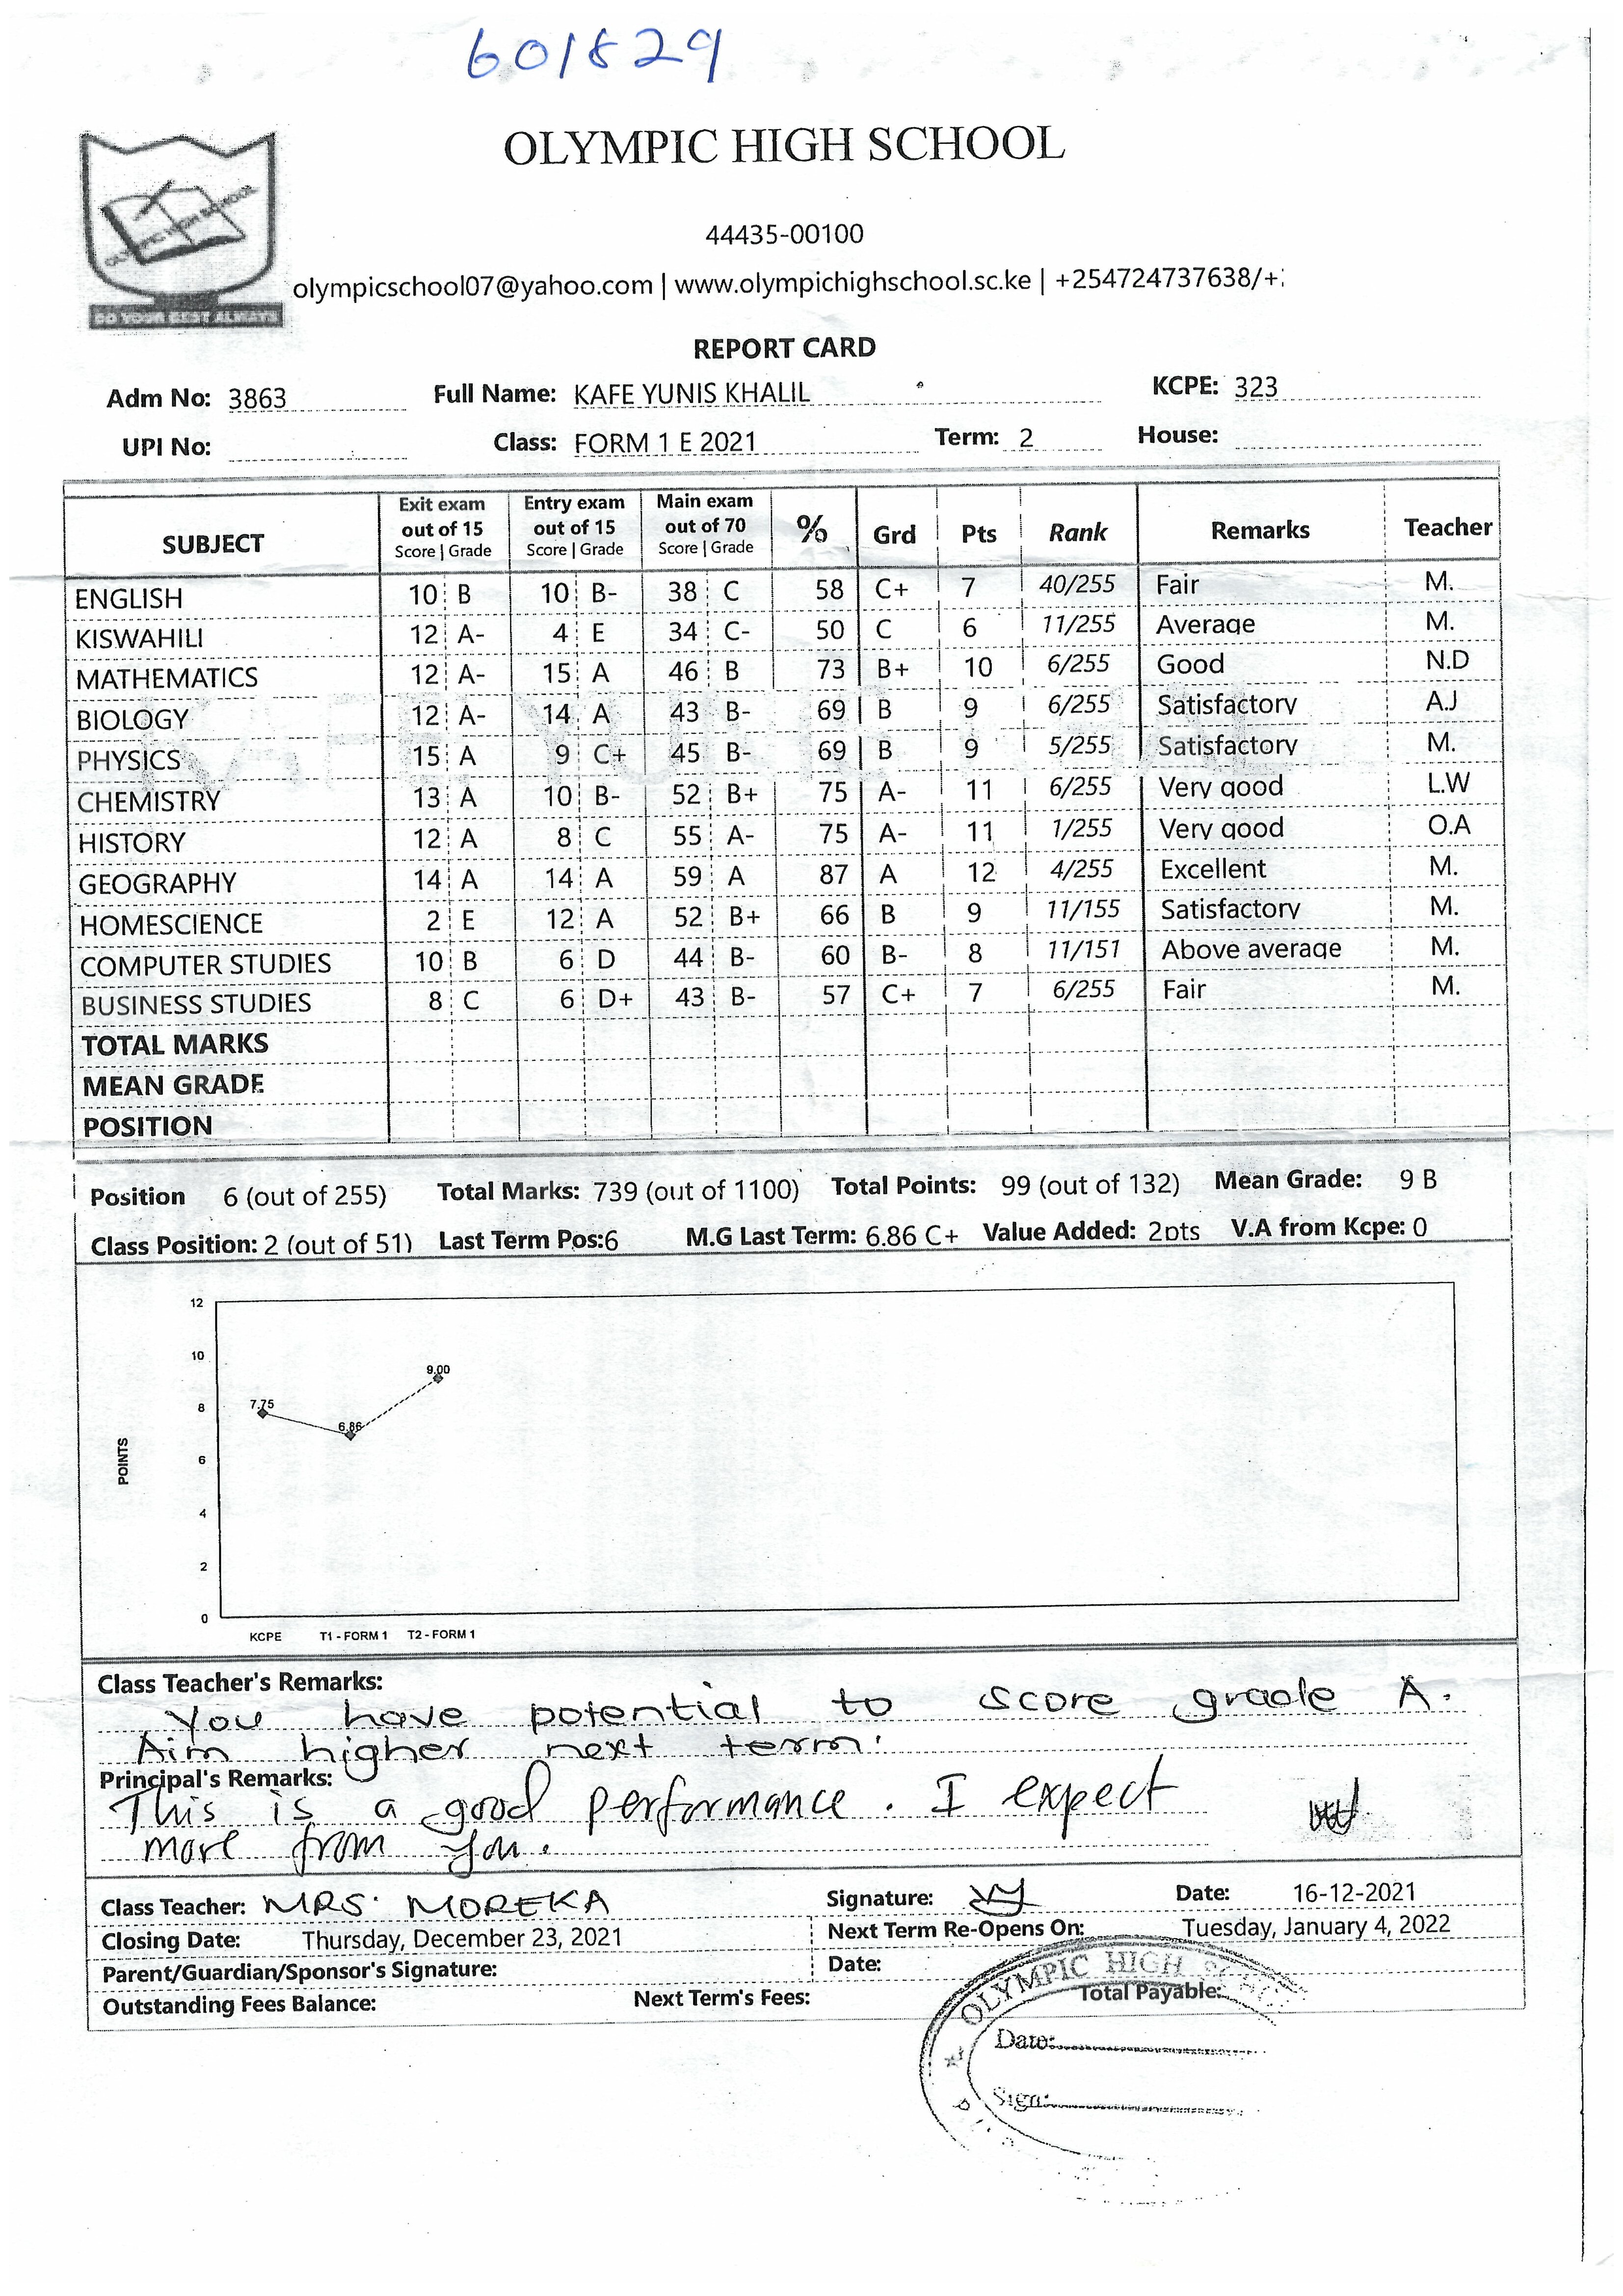 601829
OLYMPIC HIGH SCHOOL
OLYMPIC HIGH SCHOOL
DO YOUR BEST ALWAYS
44435-00100
olympicschool07@yahoo.com | www.olympichighschool.sc.ke | +254724737638/+
REPORT CARD
Adm No: 3863 Full Name: KAFE YUNIS KHALIL KCPE: 323
UPI No: Class: FORM 1 E 2021 Term: 2 House:
SUBJECT Exit exam out of 15 Score | Grade Entry exam out of 15 Score | Grade Main exam out of 70 Score | Grade % Grd Pts Rank Remarks Teacher
ENGLISH 10 B 10 B- 38 C 58 C+ 7 40/255 Fair M.
KISWAHILI 12 A- 4 E 34 C- 50 C 6 11/255 Average M.
MATHEMATICS 12 A- 15 A 46 B 73 B+ 10 6/255 Good N.D
BIOLOGY 12 A- 14 A 43 B- 69 B 9 6/255 Satisfactory A.J
PHYSICS 15 A 9 C+ 45 B- 69 B 9 5/255 Satisfactory M.
CHEMISTRY 13 A 10 B- 52 B+ 75 A- 11 6/255 Very good L.W
HISTORY 12 A 8 C 55 A- 75 A- 11 1/255 Very good O.A
GEOGRAPHY 14 A 14 A 59 A 87 A 12 4/255 Excellent M.
HOMESCIENCE 2 E 12 A 52 B+ 66 B 9 11/155 Satisfactory M.
COMPUTER STUDIES 10 B 6 D 44 B- 60 B- 8 11/151 Above average M.
BUSINESS STUDIES 8 C 6 D+ 43 B- 57 C+ 7 6/255 Fair M.
TOTAL MARKS
MEAN GRADE
POSITION
Position 6 (out of 255) Total Marks: 739 (out of 1100) Total Points: 99 (out of 132) Mean Grade: 9 B
Class Position: 2 (out of 51) Last Term Pos:6 M.G Last Term: 6.86 C+ Value Added: 2pts V.A from Kcpe: 0
12
10
8
6
4
2
0
POINTS
7.75
6.86
9.00
KCPE T1 - FORM 1 T2 - FORM 1
Class Teacher's Remarks:
You have potential to score grade A.
Aim higher next term.
Principal's Remarks:
This is a good performance. I expect
more from you.
Class Teacher: MRS. MOREKA Signature: Date: 16-12-2021
Closing Date: Thursday, December 23, 2021 Next Term Re-Opens On: Tuesday, January 4, 2022
Parent/Guardian/Sponsor's Signature: Date:
Outstanding Fees Balance: Next Term's Fees: Total Payable:
OLYMPIC HIGH
Date:
Sign: